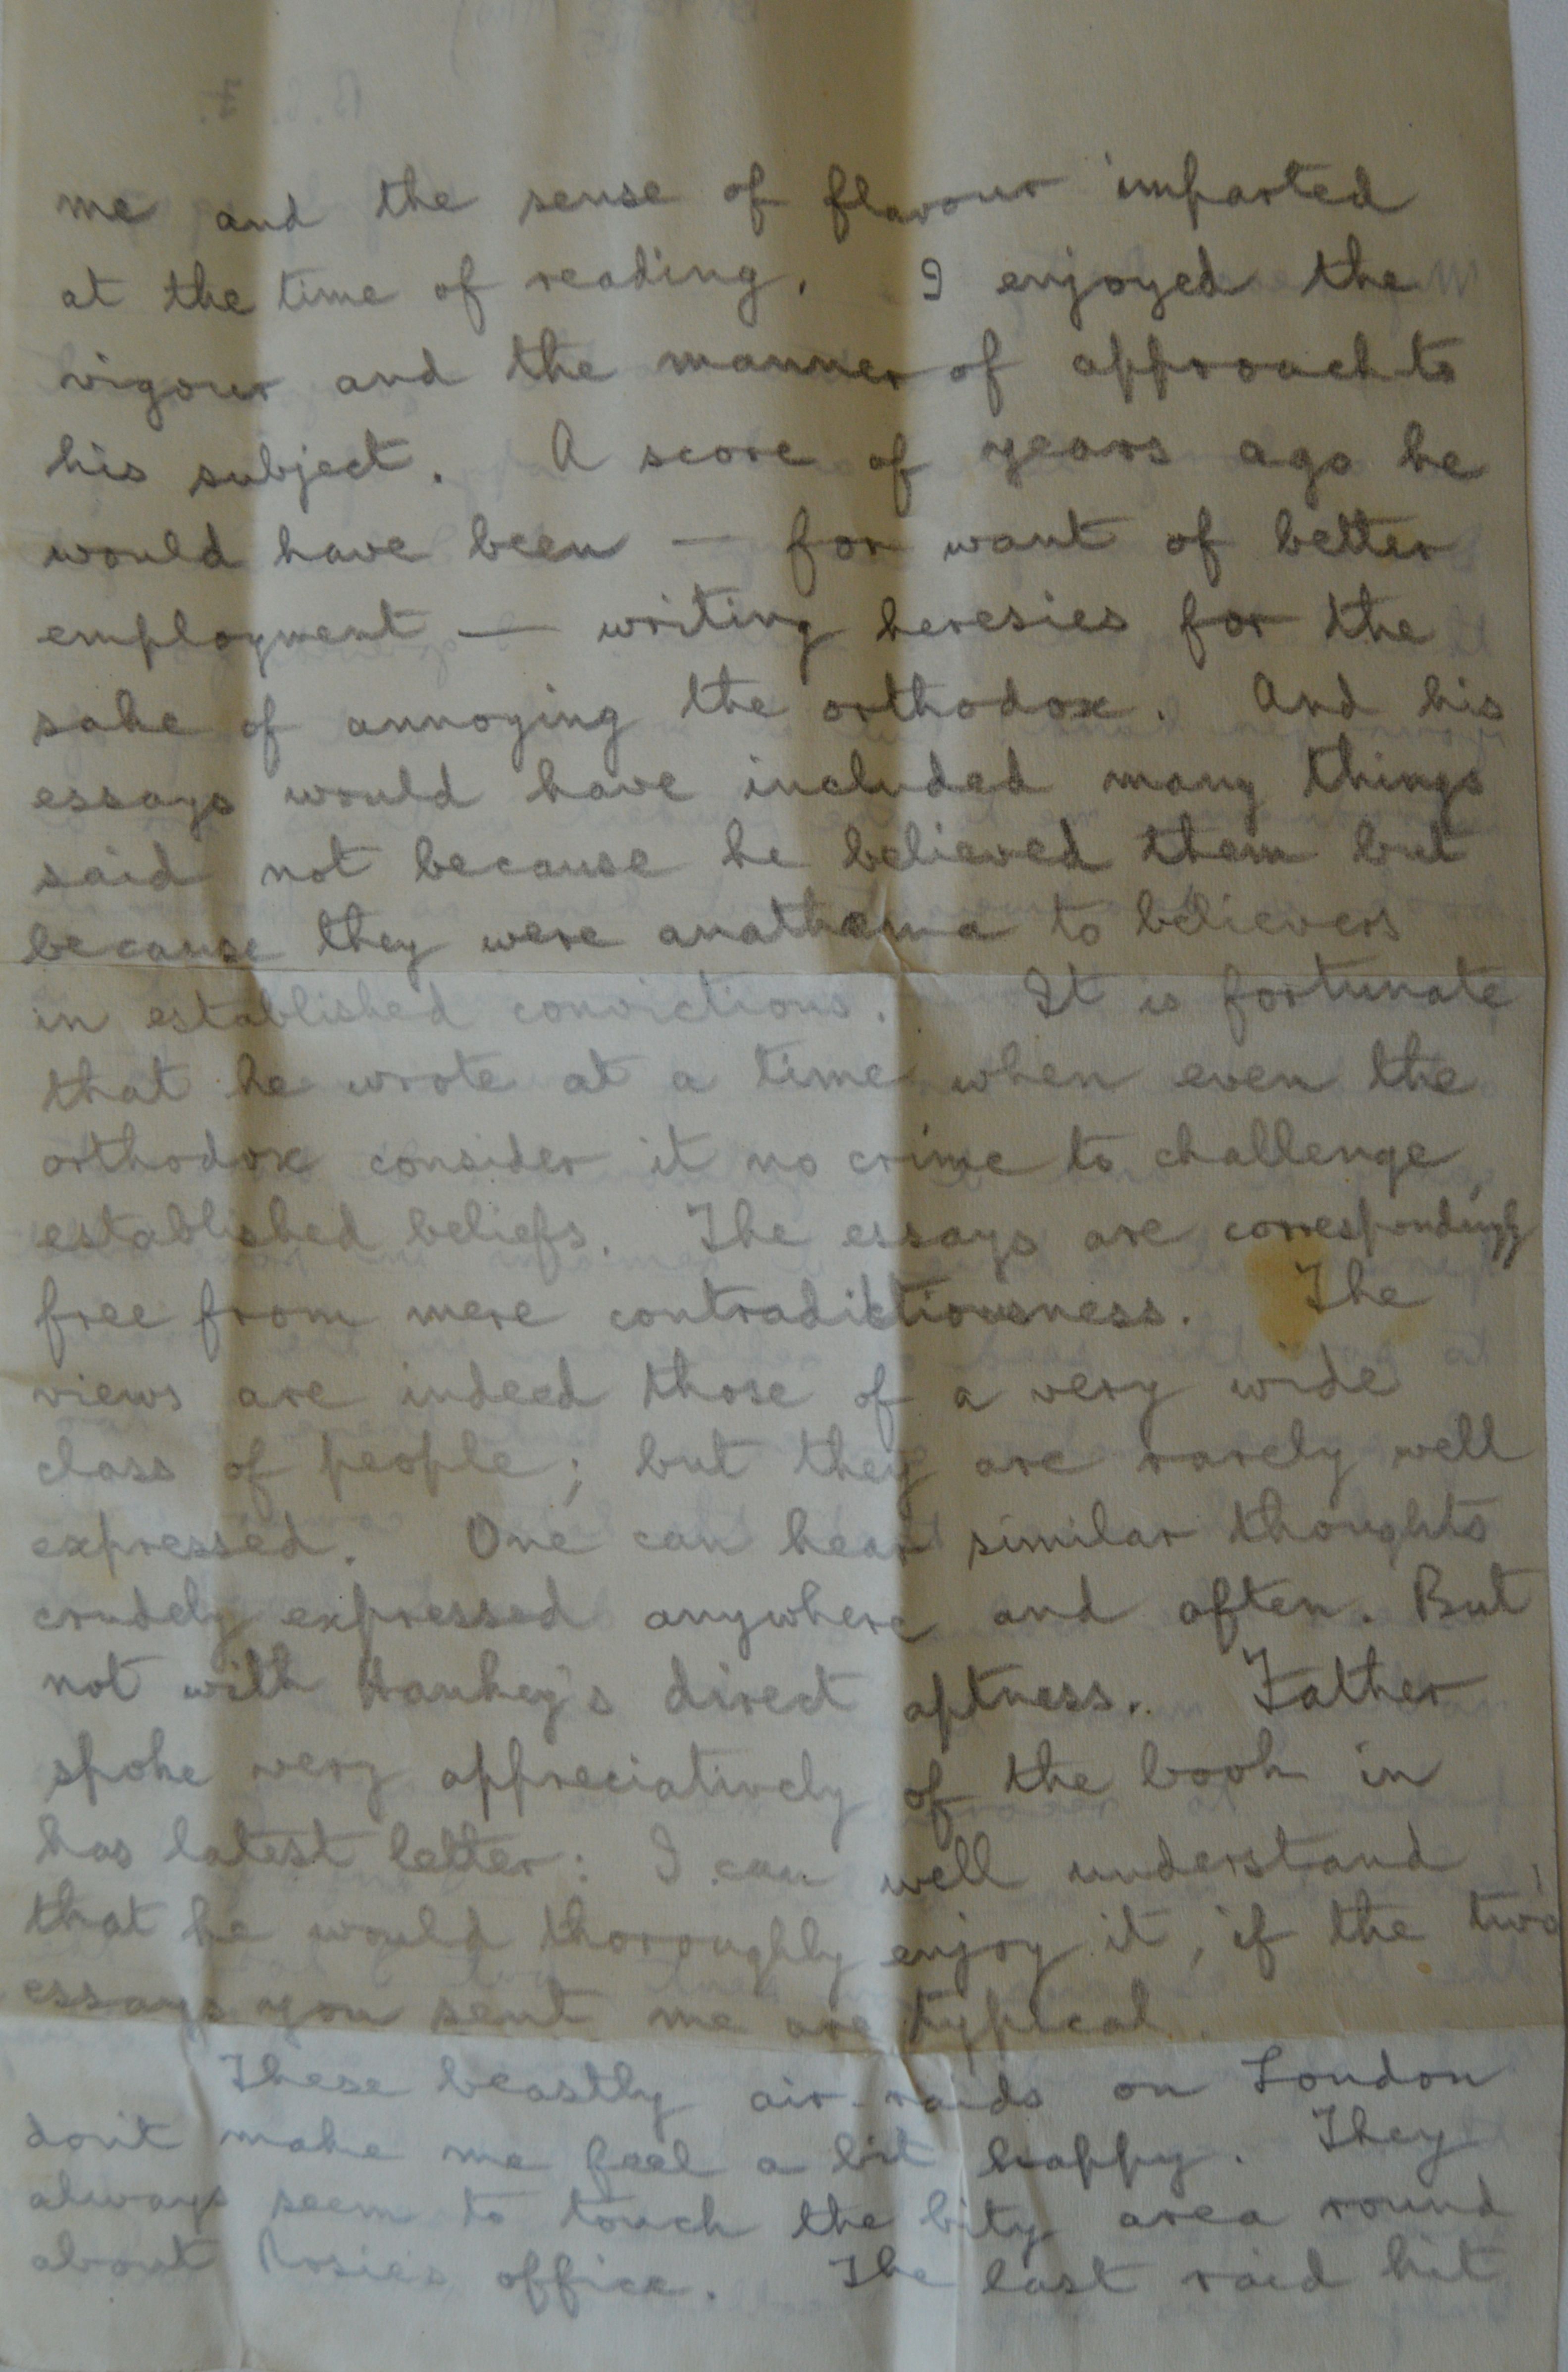 me and the sense of flavour imparted
at the time of reading. I enjoyed the
vigour and the manner of approach to
his subject. A score of years ago he
would have been — for want of better
employment — writing heresies for the
sake of annoying the orthodox. And his
essays would have included many things
said not because he believed them but
because they were anathema to believers
in established convictions. It is fortunate
that he wrote at a time when even the
orthodox consider it no crime to challenge
established beliefs. The essays are correspondingly
free from mere contradictiousness. The
views are indeed those of a very wide
class of people; but they are rarely well
expressed. One can hear similar thoughts
crudely expressed anywhere and often. But
not with Hankey's direct aptness. Father
spoke very appreciatively of the book in
has latest letter: I can well understand
that he would thoroughly enjoy it, if the two
essays you sent me are typical.
These beastly air-raids on London
don't make me feel a bit happy. They
always seem to touch the City area round
about Rosie's office. The last raid hit